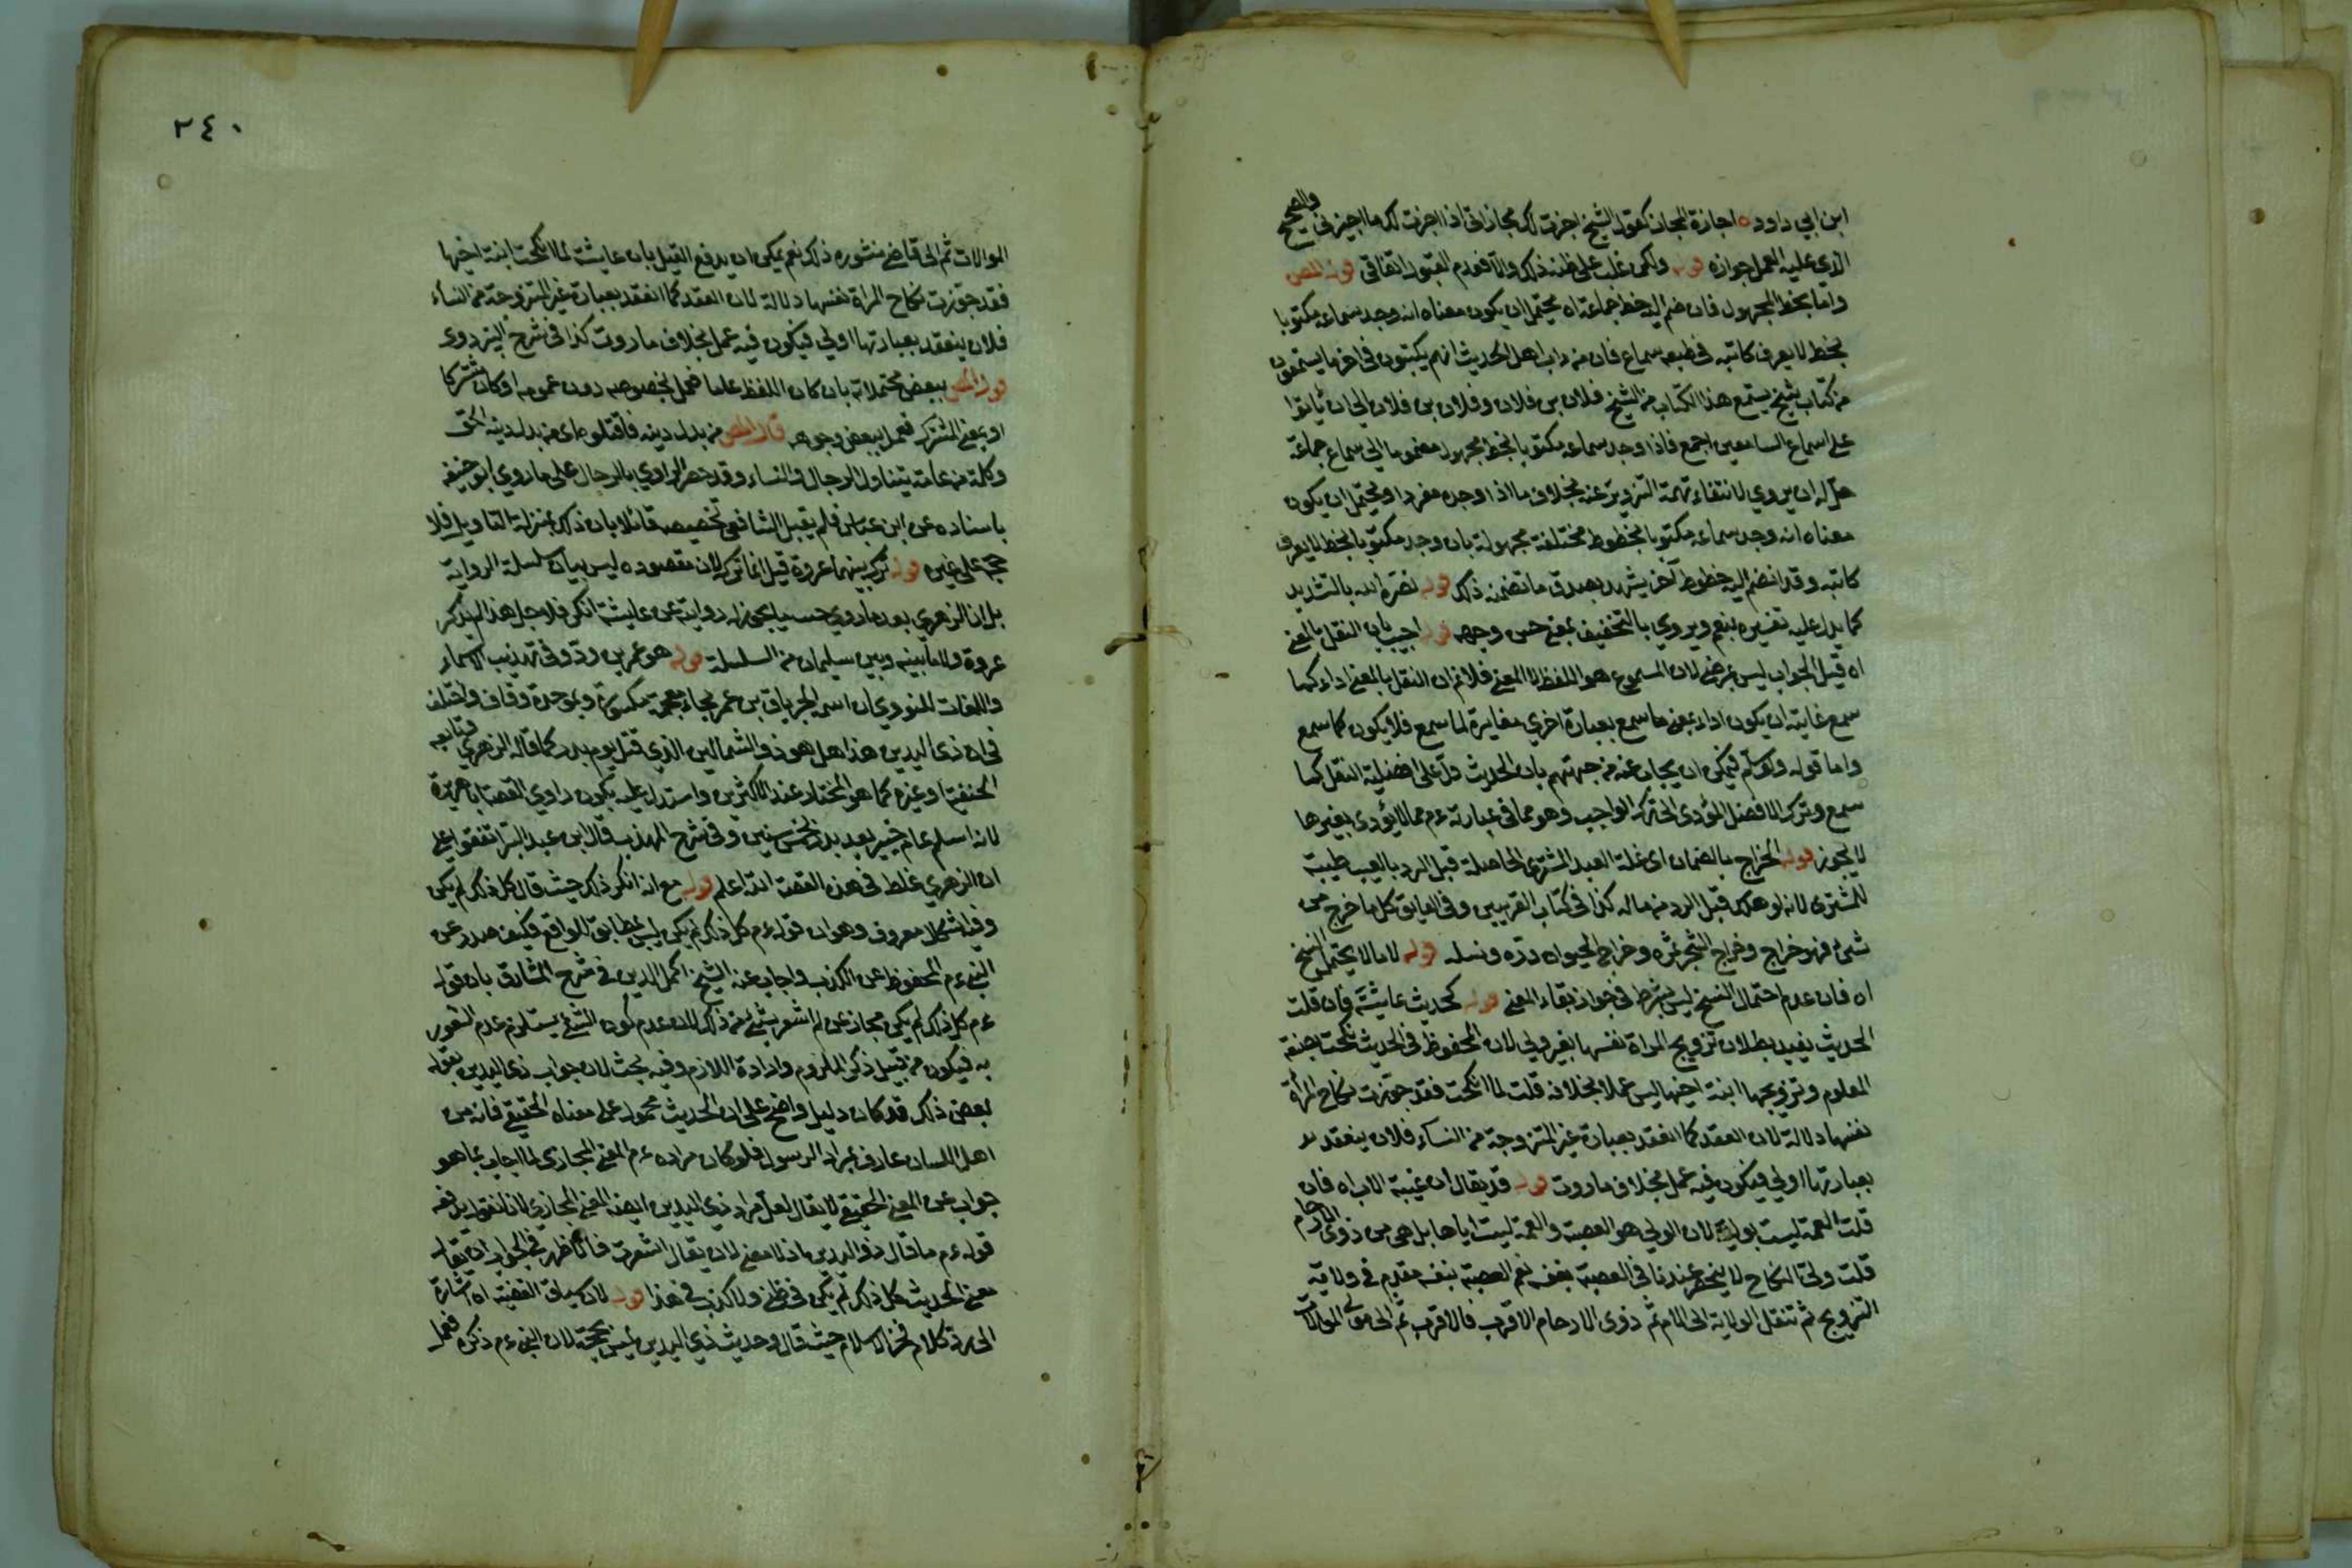 ابن ابي داود ه اجازة المجاز كقول الشيخ اجزت لك مجازاتى اذا اجزت لك ما اجيز لى والصحيح
الذى عليه العمل جوازه قوله ولكن غلب على ظنه ذلك والا فعدم القبول اتفاقى قوله المص
واما بخط المجهول فان ضم اليه خط جماعة اه يحتمل ان يكون معناه انه وجد سماعه مكتوبا
بخط لا يعرف كاتبه فى طبعه سماع فان من داب اهل الحديث انهم يكتبون فى اخر ما يستمعون
من كتاب شيخ يستمع هذا الكتاب من الشيخ فلان بن فلان وفلان بن فلان الى ان ياتوا
على اسماع السامعين اجمع فاذا وجد سماعه مكتوبا بالخط مجهول مضموما الى سماع جماعة
حل له ان يروي لانتفاء تهمة التزوير عنه بخلاف ما اذا وجده مفردا ويحتمل ان يكون
معناه انه وجد سماعه مكتوبا بخطوط مختلفة مجهولة بان وجد مكتوبا بخط لا يعرف
كاتبه وقد انضم اليه خطوط آخر يشهد بصدق ما تضمنه ذلك قوله نضر الله بالتشديد
كما يدل عليه تفسيره بنعم ويروي بالتخفيف بمعنى حسن وجهه قوله اجيب بان النقل بالمعنى
اه قيل الجواب ليس بمرضى لان المسموع هو اللفظ لا المعنى فلا نم ان النقل بالمعنى اداء كما
سمع غايته ان يكون اداء بمعنى ما سمع بعبارة اخري مغايرة لما سمع فلا يكون كما سمع
واما قوله ولو سلم فيمكن ان يجاب عنه من جهتهم بان الحديث دل على افضلية النقل كما
سمع وترك الافضل المؤدى الى ترك الواجب وهو مما فى عبارته عم مما لا يؤدى بغيرها
لا يجوز قوله الخراج بالضمان اى غلة العبد المشترى الحاصلة قبل الرد بالعيب طيبة
للمشترى لانه لو هلك قبل الرد من ماله كذا فى كتاب الغريبين وفى الفايق كل ما خرج من
شىء فهو خراج وخراج الشجر ثمره وخراج الحيوان دره ونسله قوله لا ما لا يحتمل النسخ
اه فان عدم احتمال النسخ ليس بشرط فى جواز بقاء المعنى قوله كحديث عايشة فان قلت
الحديث يفيد بطلان تزويج المراة نفسها بغير ولى لان المحفوظ فى الحديث نكحت بصيغة
المعلوم وتزويجها ابنة اخيها ليس عملا بخلافه قلت لما انكحت فقد جوزت نكاح المرأة
نفسها دلالة لان العقد كما انعقد بعبارة غير المتزوجة من النساء فلان ينعقد
بعبارتها اولى فيكون فيه عمل بخلاف ما روت قوله قد يقال ان غيبة الاب اه فان
قلت العمة ليست بولية لان الولى هو العصبة والعمة ليست اياها بل هى من ذوى الارحام
قلت ولىّ النكاح لا ينحصر عندنا فى العصبة بنفسه نعم العصبة بنفسه مقدم فى ولاية
التزويج ثم تنتقل الولاية الى الام ثم ذوى الارحام الاقرب فالاقرب ثم الى مولى الموالات
٢٤٠
الموالات ثم الى قاض منشوره ذلك نعم يمكن ان يدفع القيل بان عايشة لما انكحت ابنة اخيها
فقد جوزت نكاح المراة نفسها دلالة لان العقد كما انعقد بعبارة غير المتزوجة من النساء
فلان ينعقد بعبارتها اولى فيكون فيه عمل بخلاف ما روت كذا فى شرح البزدوى
قوله المص ببعض محتملاته بان كان اللفظ عاما فعمل بخصوصه دون عمومه او كان مشتركا
او بمعنى المشترك فعمل ببعض وجوهه قال المص من بدل دينه فاقتلوه اى من بدل دينه الحق
وكلمة من عامة يتناول الرجال والنساء وقد خصه الراوي بالرجال على ما روي ابو حنيفة
باسناده عن ابن عباس فلم يقبل الشافعى تخصيصه قائلا بان ذلك بمنزلة التاويل فلا
حجة على غيره قوله ترك بينهما عروة قيل انما ترك لان مقصوده ليس بيان سلسلة الرواية
بل ان الزهري بعد ما روي حسبما يجوز له رواية عن عايشة انكر فلاجل هذا لم يذكر
عروة ولا ما بينه وبين سليمان من السلسلة قوله هو عمر بن ودّ وفى تهذيب الاسماء
واللغات للنووي ان اسمه الخرباق بن عمر بخاء معجمة مكسورة وبموحدة وقاف واختلف
فى ان ذى اليدين هذا هل هو ذو الشمالين الذي قتل يوم بدر كما قاله الزهري وتابعه
الحنفية او غيره كما هو المختار عند الاكثرين واستدل عليه بكون راوي القصة ابا هريرة
لانه اسلم عام خيبر بعد بدر بخمس سنين وفى شرح المهذب قال ابن عبد البر اتفقوا على
ان الزهري غلط فى هذه القصة الله اعلم قوله مع انه انكر ذلك حيث قال كل ذلك لم يكن
وفيه اشكال معروف وهو ان قوله عم كل ذلك لم يكن ليس بمطابق للواقع فكيف صدر عن
النبى عم المحفوظ عن الكذب واجاب عنه الشيخ اكمل الدين فى شرح المشارق بان قوله
عم كل ذلك لم يكن مجاز عن لم اشعر بشىء من ذلك لان عدم كون الشىء يستلزم عدم الشعور
به فيكون من قبيل ذكر الملزوم وارادة اللازم وفيه بحث لان جواب ذى اليدين بقوله
بعض ذلك قد كان دليل واضح على ان الحديث محمول على معناه الحقيقى فانه من
اهل اللسان عارف بمراد الرسول فلو كان مراده عم المعنى المجازى لما اجاب بما هو
جواب عن المعنى الحقيقى لا يقال لعل مراد ذي اليدين ايضا المعنى المجازي لانا نقول يدفعه
قوله عم ما قال ذو اليدين اذ لا معنى لان يقال اشعرت فالاظهر فى الجواب ان يقال
معنى الحديث كل ذلك لم يكن فى ظنى ولا كذب فى هذا قوله لان سياق القضية اه اشارة
الى رد كلام فخر الاسلام حيث قال وحديث ذي اليدين ليس بحجة لان النبى عم ذكره فعمل